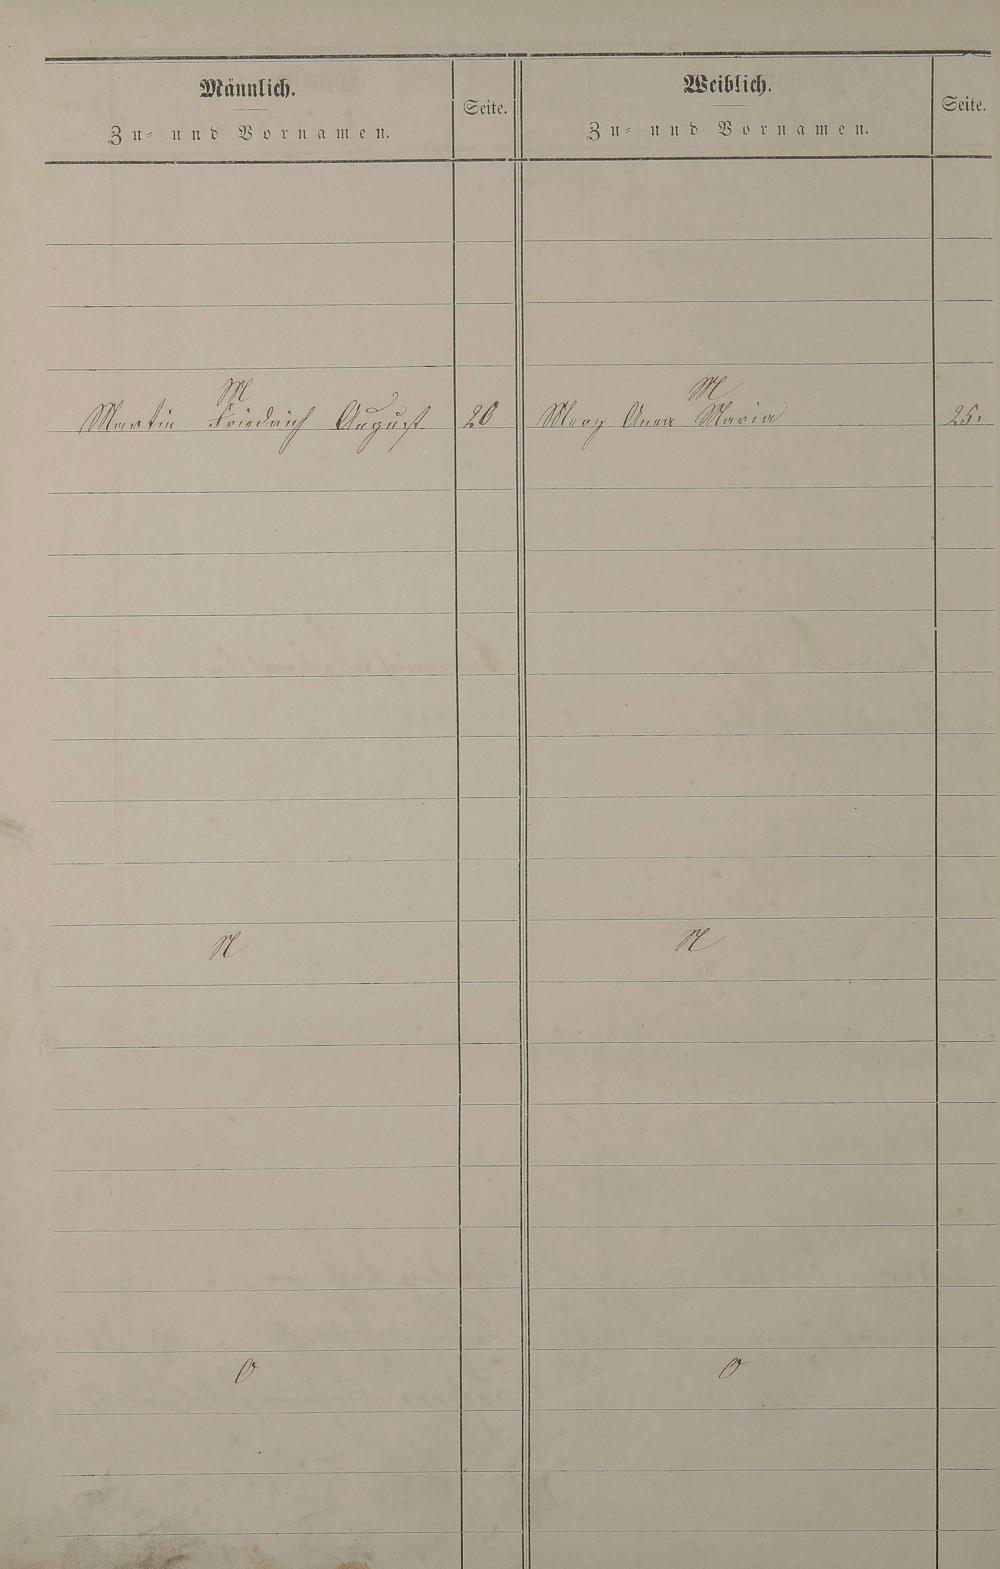 Männlich.
Zu- und Vornamen.
Seite.
Weiblich.
Zu- und Vornamen.
Seite.
M
M
Martin Friedrich August 20 Merz Anna Maria 25.
N
N
O
O